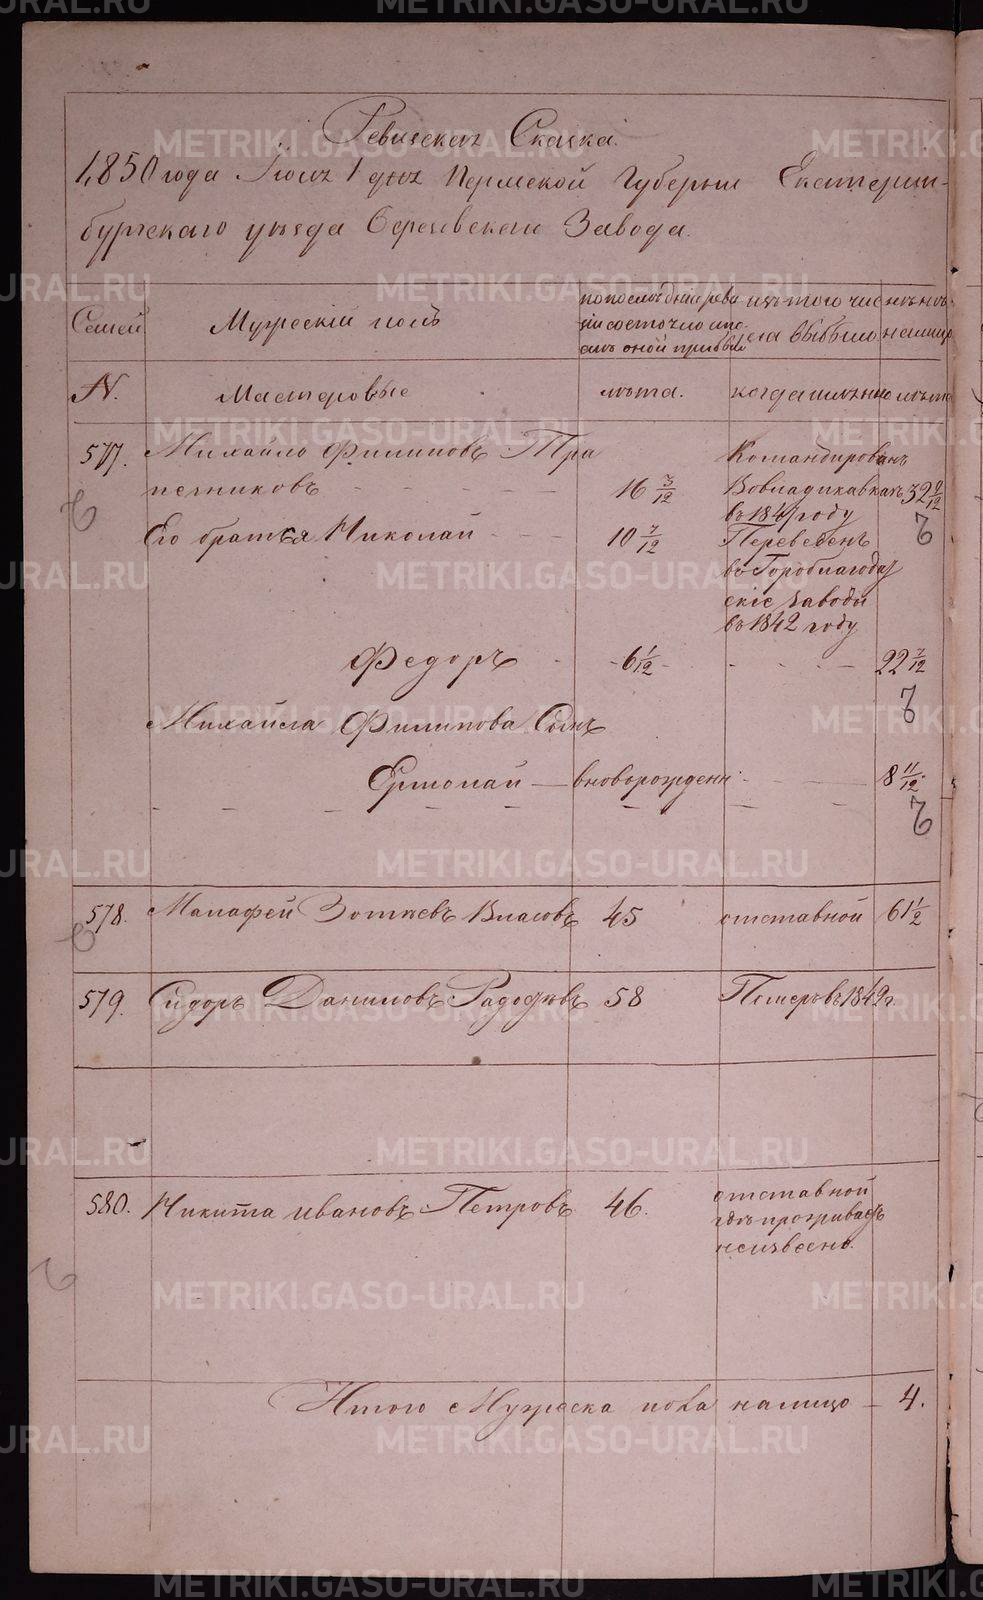 Ревизская Сказка.
1850 года Июля 1 дня Пермской Губернии Екатерин-
бургского уезда Березовскаго Завода.
Семей
Мужеский полъ
по последней реви
зіи состояло и по-
слѣ оной прибыло
изъ того чис
ла выбыло
нынѣ на
лицо
N.
Мастеровые
лѣта.
когда именно
лѣта
577. Михайло Филиповъ Тра
пезниковъ 16 3/12
Командированъ
Вовладикавказъ
въ 184 году
32 9/12
Его братья Николай 10 7/12
Переведенъ
въ Гороблагодат
скіе заводы
въ 1842 году
Федоръ 6 1/12 22 7/12
Михайла Филипова Сынъ
Ермолай — вноворожденн: 8 11/12
578. Малафей Зотѣевъ Власовъ 45 отставной 61 1/2
579. Сидоръ Даниловъ 58 Померъ въ 1849 г.
580. Никита ивановъ Петровъ 46. отставной
гдѣ проживаетъ
неизвесно.
Итого Мужеска пола налицо — 4.
METRIKI.GASO-URAL.RU